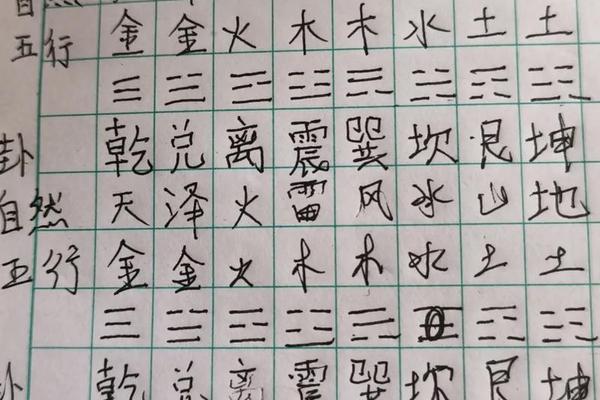 自然
五行 金 金 火 木 木 水 土 土
☰ ☱ ☲ ☳ ☴ ☵ ☶ ☷
卦 乾 兑 离 震 巽 坎 艮 坤
自然 天 泽 火 雷 风 水 山 地
五行 金 金 火 木 木 水 土 土
☰ ☱ ☲ ☳ ☴ ☶ ☷
卦 乾 兑 离 震 巽 坎 艮 坤